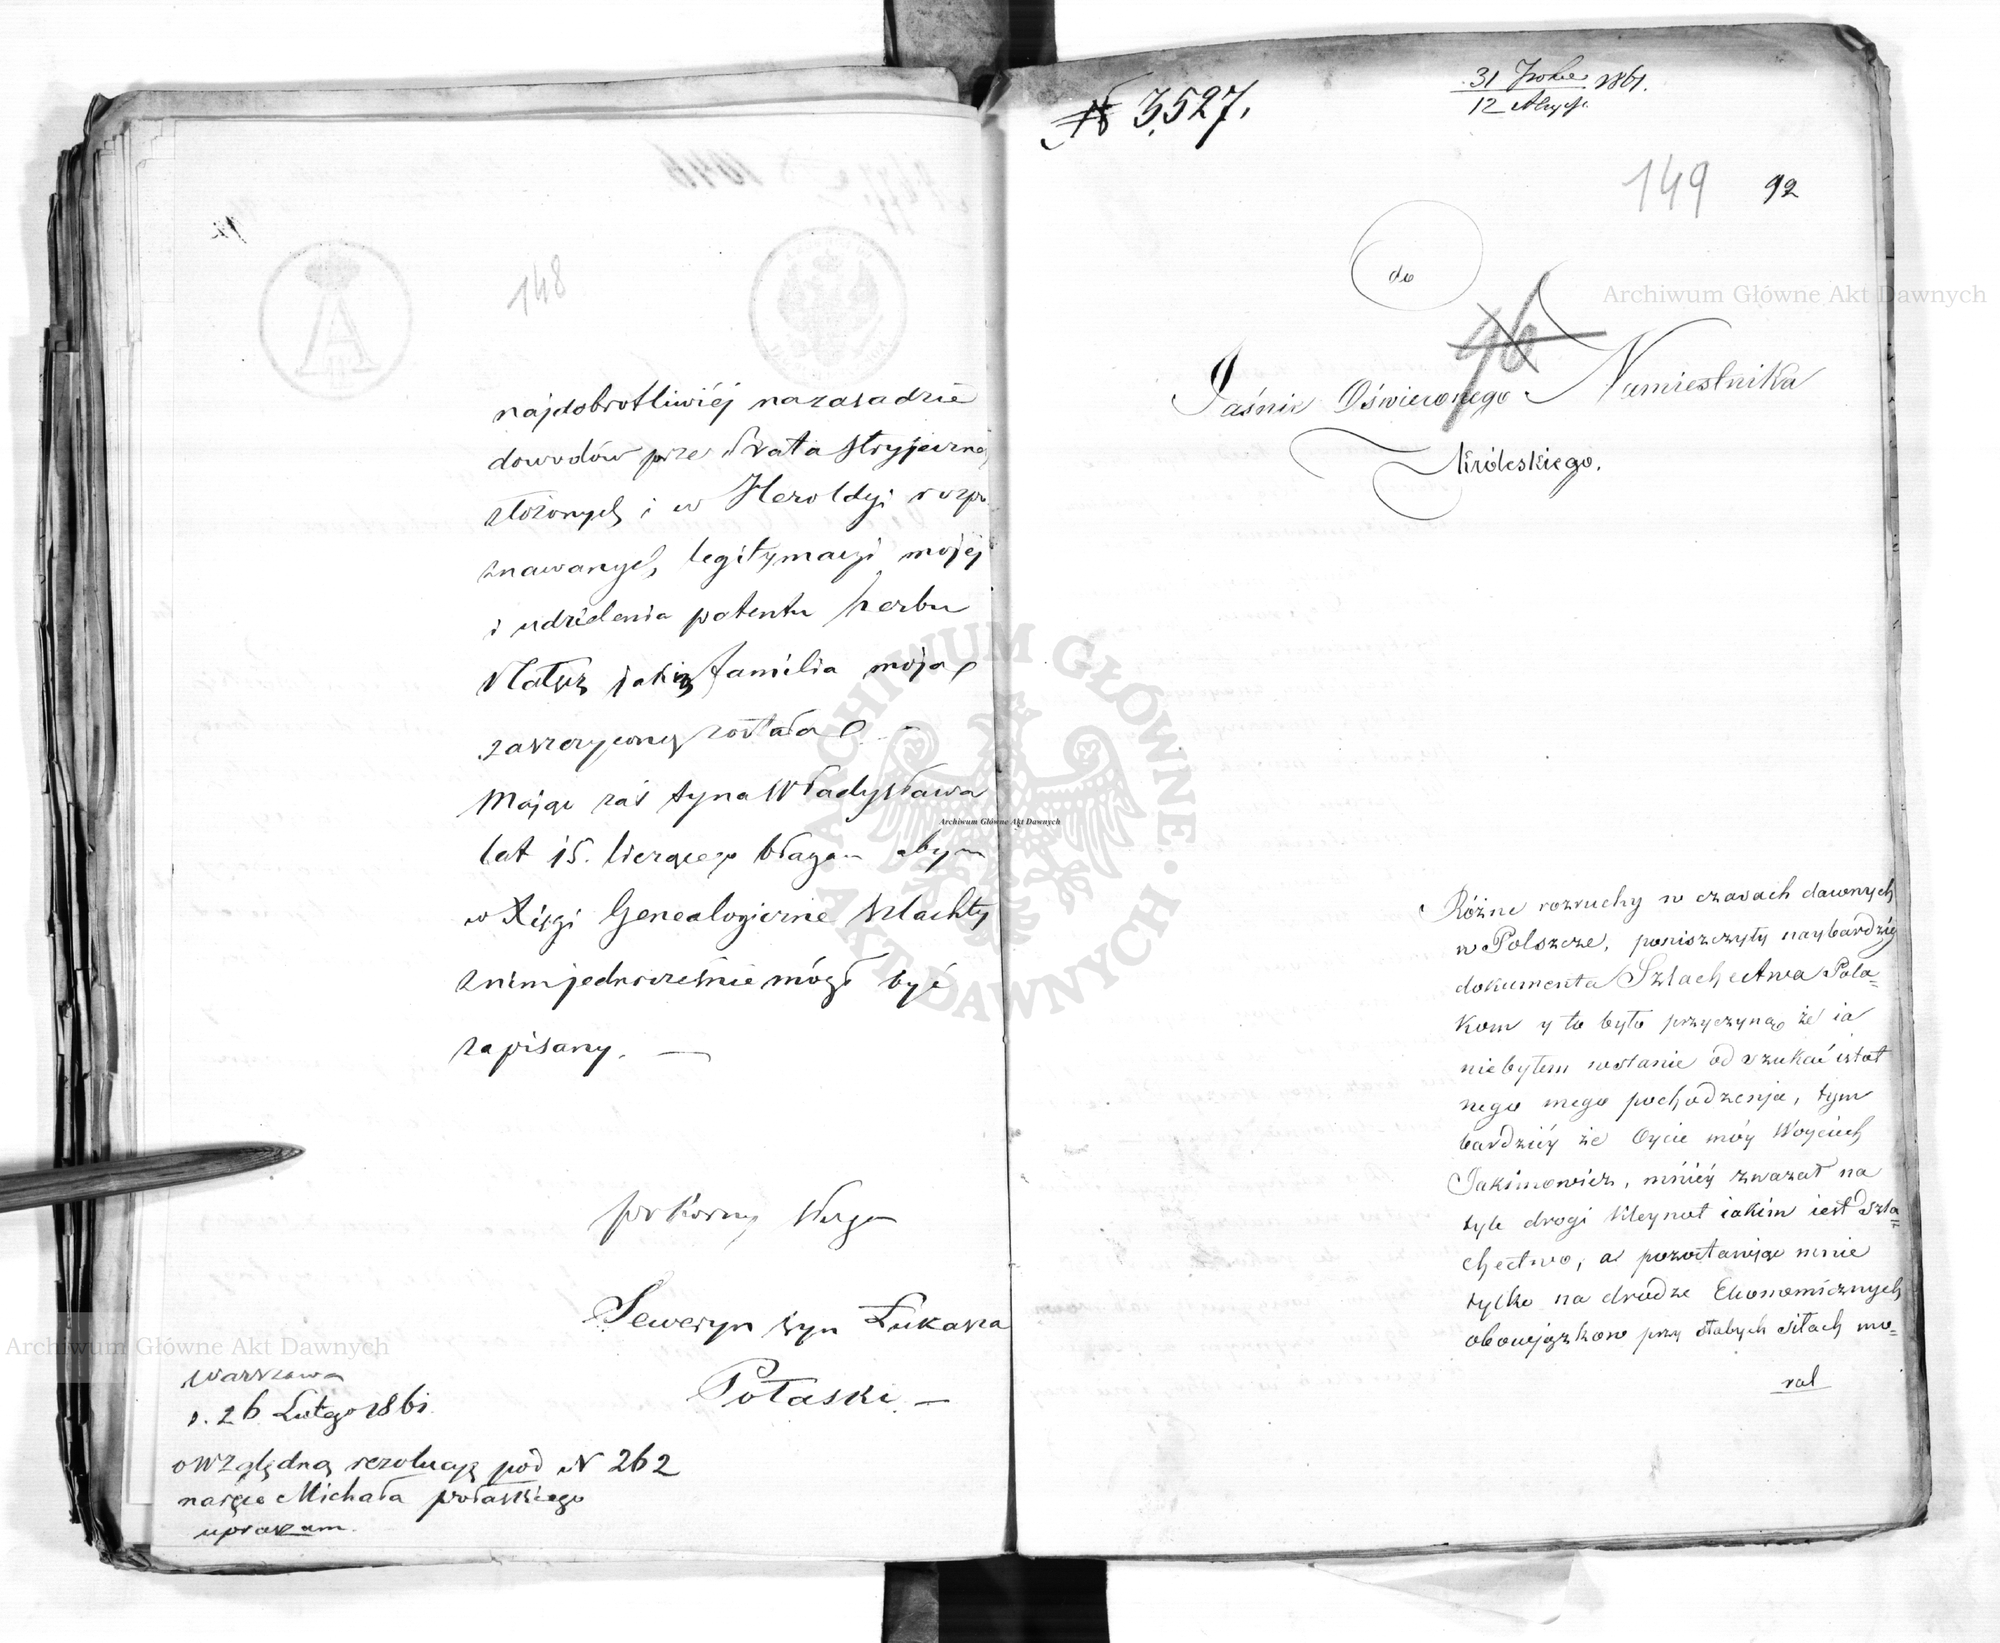 148
najdobrotliwiéj na zasadzie
dowodów prze brata stryjeczne
złożonych i w Heroldyi rozpo
znawanych, legitymacyi mojéj
i udzielenia patentu herbu
jakiz familia moja
zaszczycona została
Mając zaś syna Władysława
lat 15. liczącego błagam abym
w Xięgi Genealogiczne Szlachty
z nim jednocześnie mógł być
zapisany. —
pokorny sługa
Seweryn syn Łukasza
Połaski. —
Warszawa
d. 26 Lutego 1861
o względną rezolucyą pod N 262
na ręce Michała Połaskiego
upraszam.
№ 3,527.
31
12 1861.
149 92
do
96
Jaśnie Oświeconego Namiestnika
Króleskiego.
Różne rozruchy w czasach dawnych
w Polszcze, poniszczyły naybardziéy
dokumenta Szlachectwa Pola=
kom y to było przyczyną że ia
niebyłem wstanie od szukać istot
nego mego pochodzenia, tym
bardziéy że Oyciec móy Woyciech
Jakimowicz, mniéy zważał na
tyle drogi kleynot iakim iest Szla=
chectwo, a pozostawiając mnie
tylko na drodze Ekonomicznych
obowiązkow przy słabych siłach mo=
ral
Archiwum Główne Akt Dawnych
Archiwum Główne Akt Dawnych
Archiwum Główne Akt Dawnych
ARCHIWUM GŁÓWNE
AKT DAWNYCH